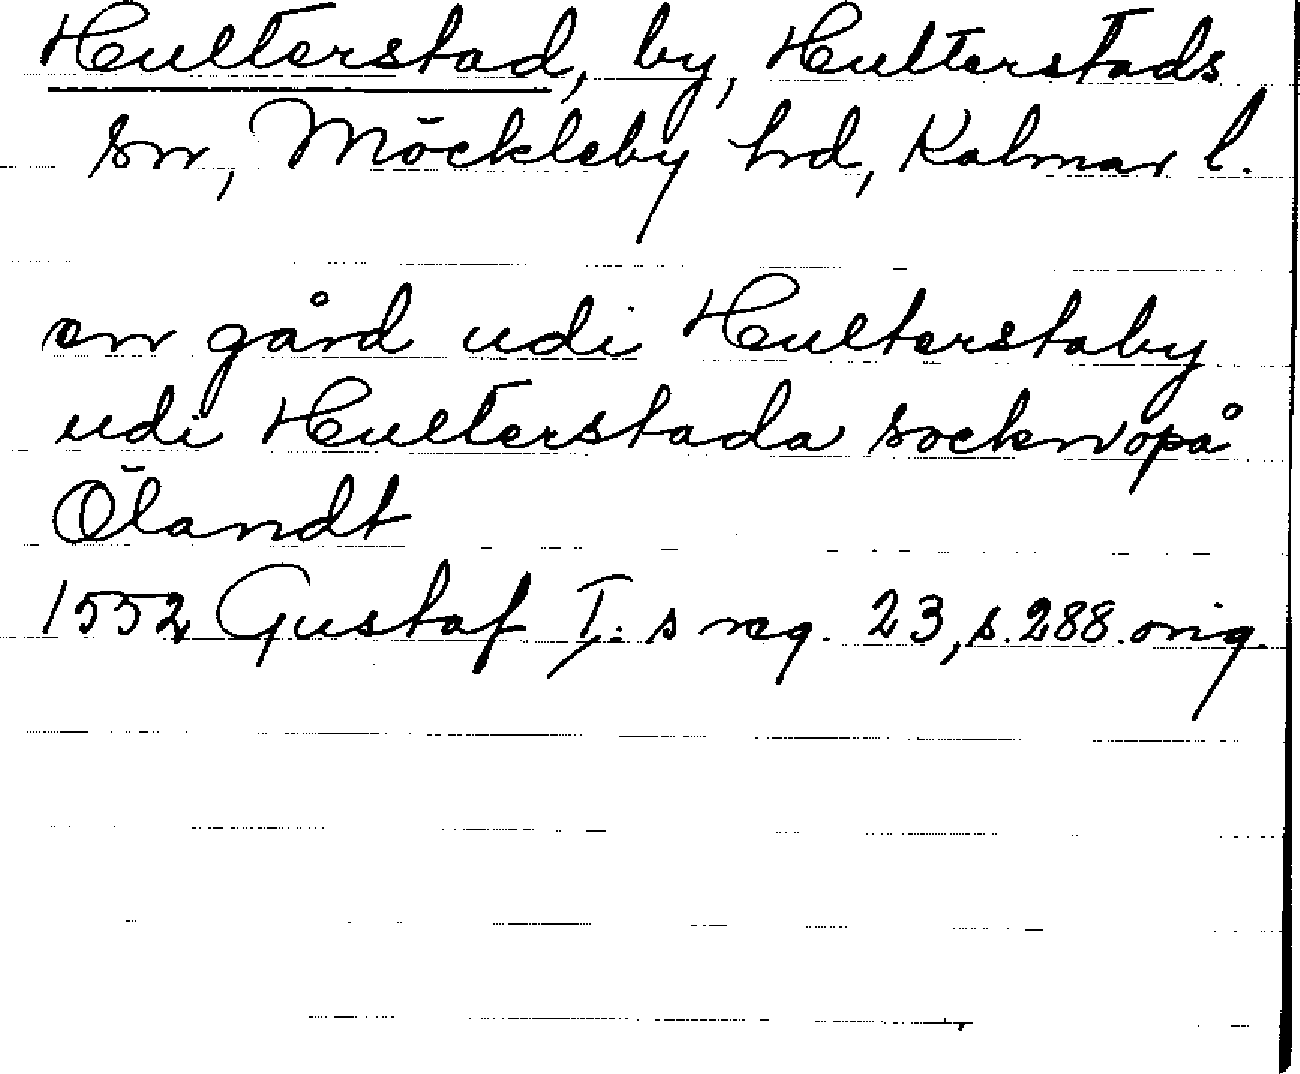 Hulterstad, by, Hulterstads
sn, Möckleby hrd, Kalmar l.
en gård udi Hulterstaby
udi Hulterstada sockn opå
Ölandt
1552 Gustaf I:s reg. 23, s. 288. orig.